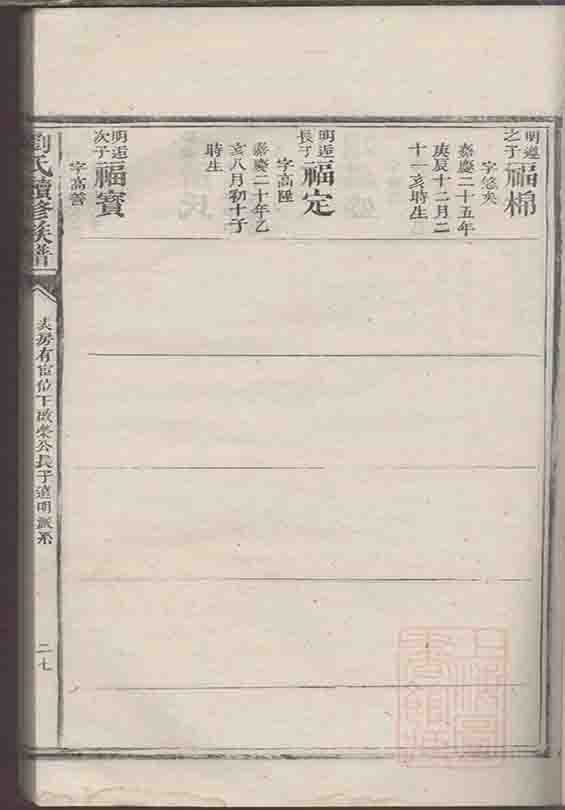 明遵
之子
福棉
字悠矣
嘉慶二十五年
庚辰十二月二
十一亥時生
明近
長子
福定
字高陞
嘉慶二十年乙
亥八月初十子
時生
明近
次子
福寶
字高
劉氏續修族譜
房有宦位下啟榮公長子達明派系
二七
上海圖
書館藏